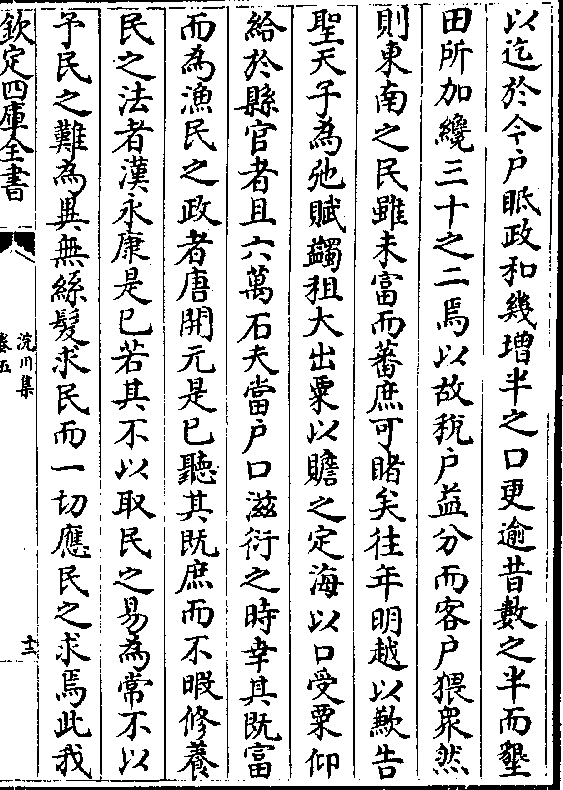 以迄於今户眡政和幾増半之口更逾昔數之半而墾
田所加纔三十之二焉以故稅户益分而客户猥衆然
則東南之民雖未富而蕃庶可睹矣往年明越以歉告
聖天子為弛賦蠲租大出粟以贍之定海以口受粟仰
給於縣官者且六萬石夫當户口滋衍之時幸其既富
而為漁民之政者唐開元是已聽其既庶而不暇修養
民之法者漢永康是已若其不以取民之易為常不以
予民之難為異無絲髮求民而一切應民之求焉此我
欽定四庫全書
浣川集
卷五
十三